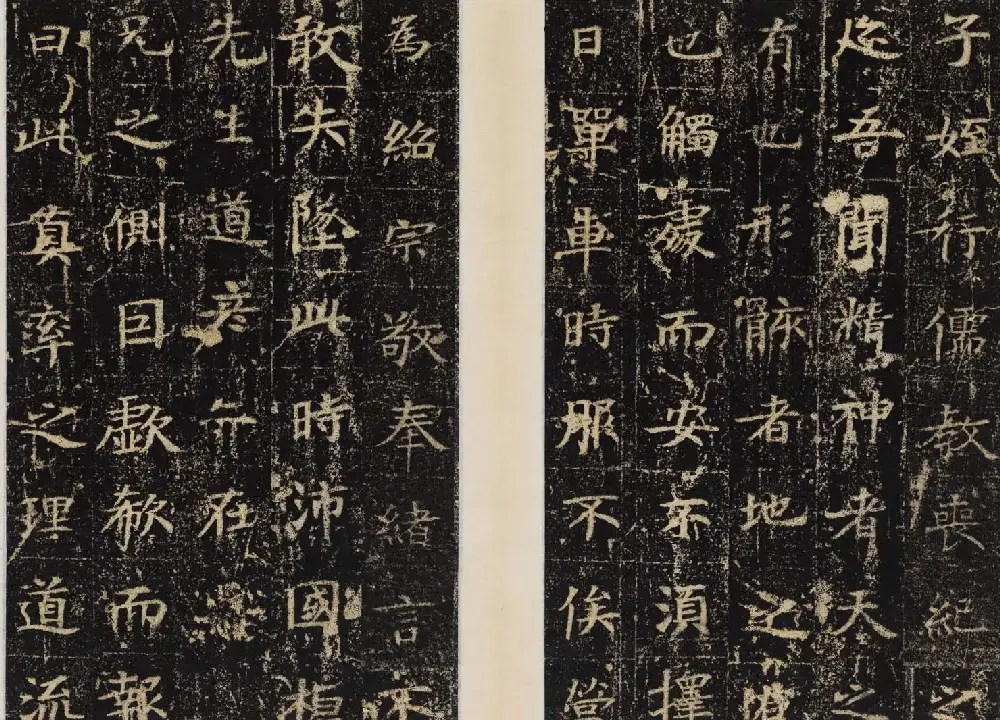 子姪行儒教喪紀之
吾聞精神者天之
有也形骸者地之
也觸處而安不須擇
日單車時服不俟營
為紹宗敬奉緒言不
敢失墜此時沛國桓
先生道彦亦在
兄之側因歔欷而報
曰此真率之理道流